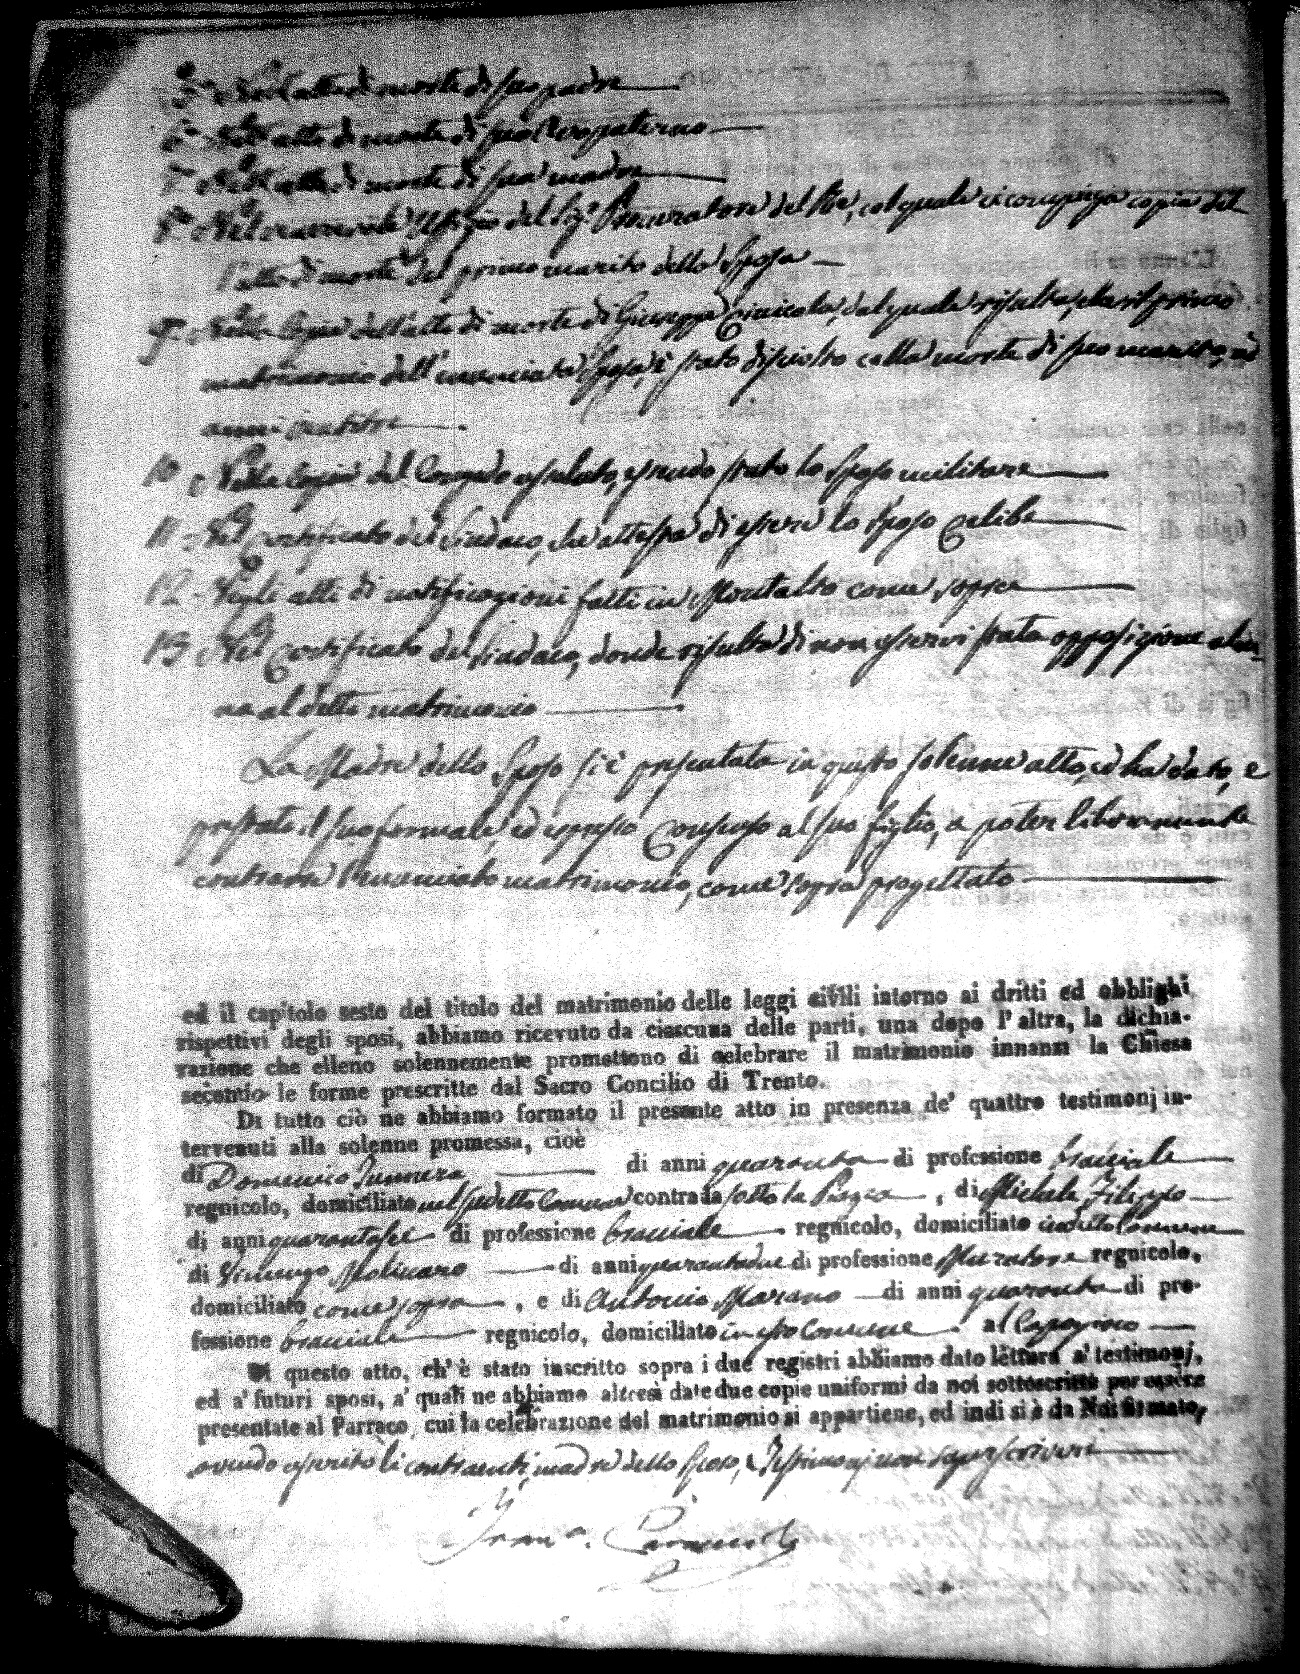 5° Nell'atto di morte di suo padre
6° Nell'atto di morte di suo Avo paterno
7° Nell'atto di morte di sua madre
8° Nel Uffizio del Sig.r Procuratore del Re, col quale copia del
l'atto di morte del primo marito della Sposa
9° Nella copia dell'atto di morte di Giuseppe dal quale risulta, che il primo
matrimonio dell'enunciata Sposa, è stato disciolto colla morte di suo marito,
anni
10 Nella copia del Congedo assoluto, essendo stato lo Sposo militare
11 Nel Certificato del Sindaco, che attesta di essere lo Sposo Celibe
12 Negli atti di notificazioni fatti in Montalto come sopra
13 Nel Certificato del Sindaco, donde risulta di non esservi stata opposizione alcu-
na al detto matrimonio
La Madre dello Sposo si è presentata in questo solenne atto, ed ha dato, e
prestato il suo formale, ed espresso Consenso al suo figlio, a poter liberamente
contrarre l'enunciato matrimonio, come sopra progettato
ed il capitolo sesto del titolo del matrimonio delle leggi civili intorno ai dritti ed obblighi
rispettivi degli sposi, abbiamo ricevuto da ciascuna delle parti, una dopo l'altra, la dichia-
razione che elleno solennemente promettono di celebrare il matrimonio innanzi la Chiesa
secondo le forme prescritte dal Sacro Concilio di Trento.
Di tutto ciò ne abbiamo formato il presente atto in presenza de' quattro testimonj in-
tervenuti alla solenne promessa, cioè
di Domenico di anni quaranta di professione bracciale
regnicolo, domiciliato nel sudetto Comune contrada sotto la Piazza, di Michele Filippo
di anni quarantasei di professione bracciale regnicolo, domiciliato in detto Comune
di Vincenzo Molinaro di anni quarantadue di professione Muratore regnicolo,
domiciliato come sopra, e di Antonio Marano di anni quaranta di pro-
fessione bracciale regnicolo, domiciliato in esso Comune al
Di questo atto, ch'è stato inscritto sopra i due registri abbiamo dato lettura a' testimonj,
ed a' futuri sposi, a' quali ne abbiamo altresì date due copie uniformi da noi sottoscritte per essere
presentate al Parroco, cui la celebrazione del matrimonio si appartiene, ed indi si è da Noi firmato,
avendo asserito li contraenti, madre dello Sposo, e Testimonj non saper scrivere